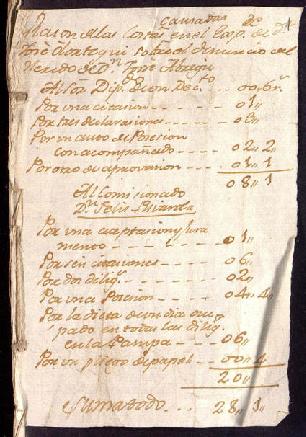 Rason de las Costas causadas en el Exp.te de D.n
José Ureta qui sobre el Denuncio del
Partido de D.n Fran.co
A los Dip.s Dion Dec.to --- 00,,6 r.s
Por una citacion --- 01,,
Por tres declarasiones --- 03,,
Por un auto de Posesion
con acompañado --- 02,, 2,,
Por otro de aprovacion --- 01,, 1
08,, 1
Al Comisionado
D.n Felis Miranda
Por una aceptasion y jura
mento --- 01,,
Por seis citaciones --- 06,,
Por dos dilig.s --- 02,,
Por una Posesion --- 04,, 4,,
Por la dieta de un dia ocu
pado en todas las dilig.s
en la Pampa --- 06,,
Por un pliego de papel --- 00,, 4
20,,
Suma todo --- 28,, 1,,